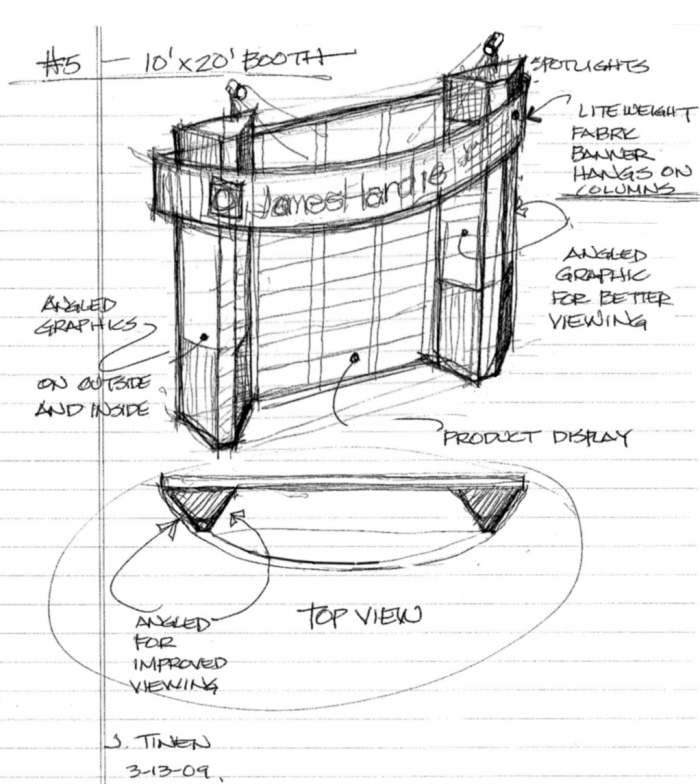 #5 — 10' x 20' BOOTH
SPOTLIGHTS
LITEWEIGHT
FABRIC
BANNER
HANGS ON
COLUMNS
JamesHardie
ANGLED
GRAPHIC
FOR BETTER
VIEWING
ANGLED
GRAPHICS
ON OUTSIDE
AND INSIDE
PRODUCT DISPLAY
TOP VIEW
ANGLED
FOR
IMPROVED
VIEWING
J. TINEN
3-13-09.